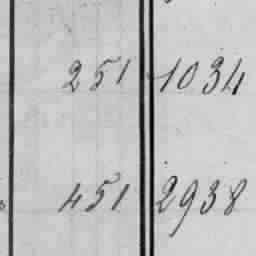 251 1034
451 2938